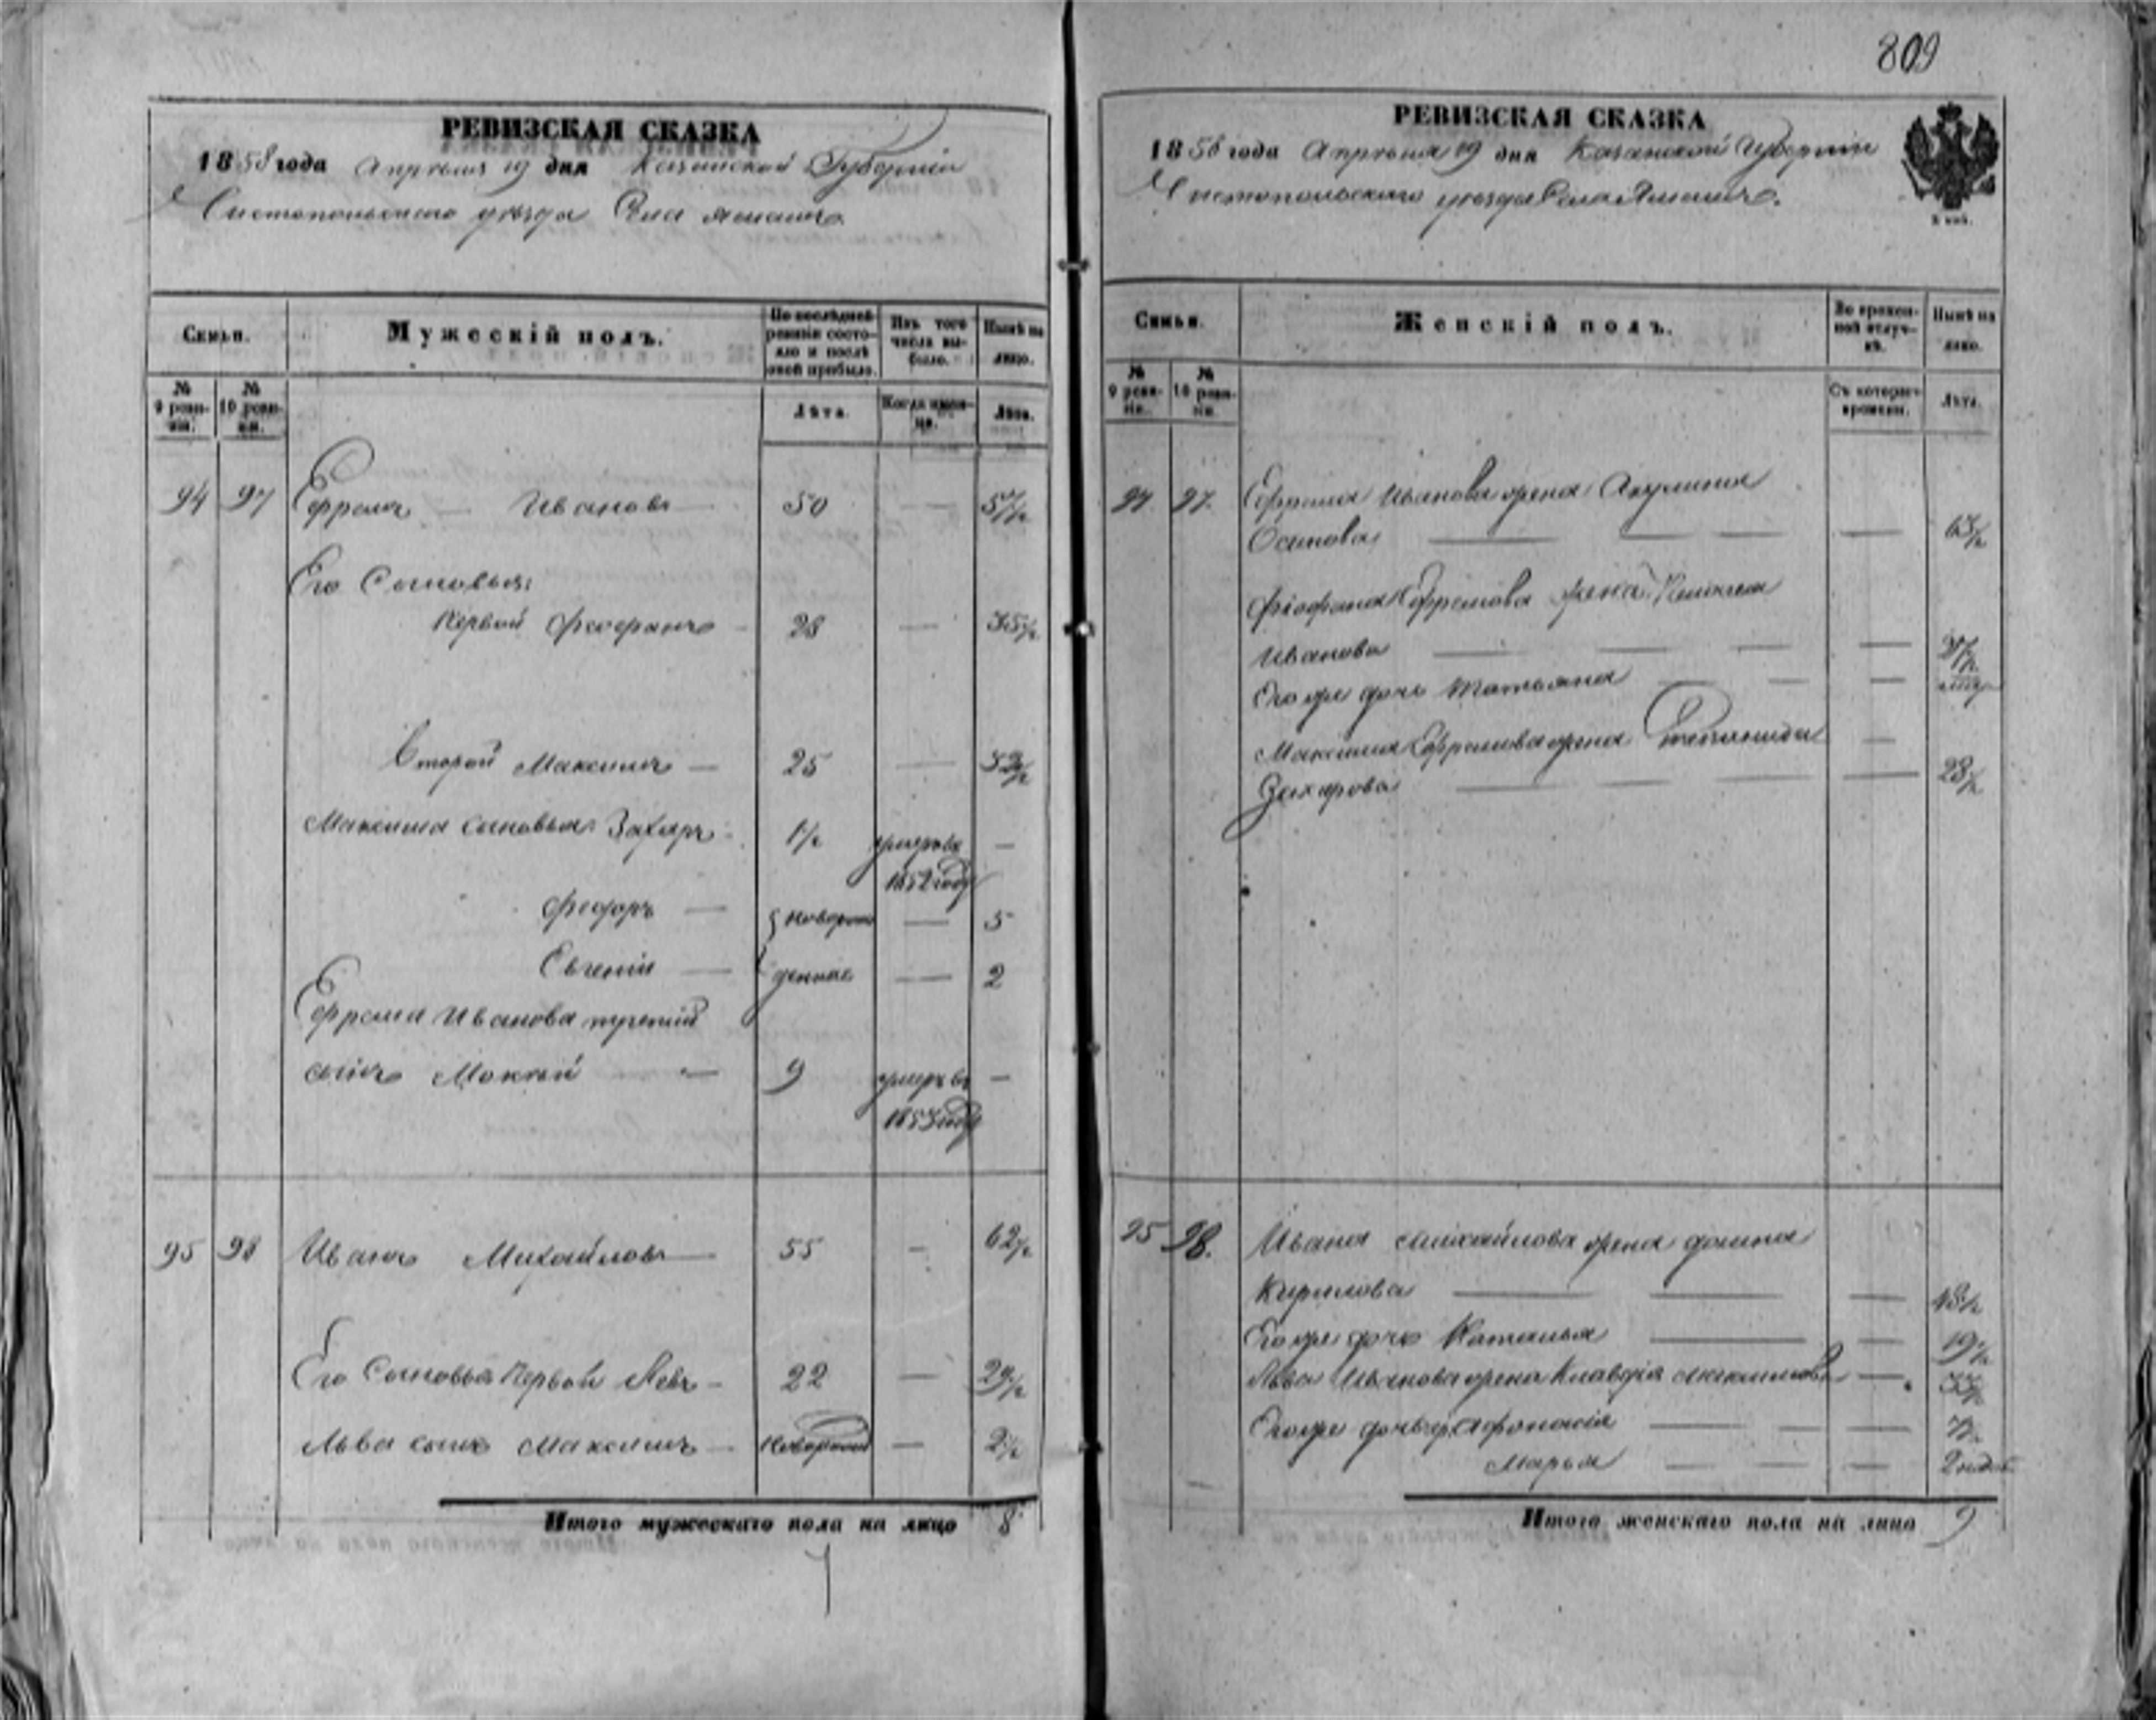 809
РЕВИЗСКАЯ СКАЗКА
1858 года Апреля 19 дня Казанской Губернiи
Чистопольскаго уѣзда Села
Семьи.
Мужескій полъ.
По послѣдней ревизіи состояло и послѣ оной прибыло.
Изъ того числа выбыло.
Нынѣ на лицо.
№ 9 ревизіи.
№ 10 ревизіи.
Лѣта.
Когда именно.
Лѣта.
94 97 Ефремъ — Ивановъ — 50 — 57½
Его Сыновья:
Первой Феофанъ — 28 — 35½
Второй Максимъ — 25 — 32½
Максима сыновья Захаръ — 1½ умеръ въ —
1852 году
Федоръ — новорож — 5
Евгеній — денные — 2
Ефрема Иванова третій
сынъ Мокей — 9 умеръ въ —
1853 году
95 98 Иванъ Михайловъ — 55 — 62½
Его Сыновья Первой Левъ — 22 — 29½
Льва сынъ Максимъ — — 2½
Итого мужескаго пола на лицо 8
РЕВИЗСКАЯ СКАЗКА
1858 года Апреля 19 дня Казанской Губернiи
Чистопольскаго уѣзда Села
Семьи.
Женскій полъ.
Во временной отлучкѣ.
Нынѣ на лицо.
№ 9 ревизіи.
№ 10 ревизіи.
Съ котораго времени.
Лѣта.
94 97. Ефрема Иванова жена Акулина
Осипова — — — — 63½
Феофана Ефремова жена
Иванова — — — —
Его же дочь Татьяна — — —
Максима Ефремова жена Степанида —
Захарова — — — — 28½
95 98. Ивана Михайлова жена Домна
Кирилова — — — 48½
Его же дочь Наталья — — 19½
Льва Иванова жена Клавдія Максимова —
Его же дочь Афонасія — —
Марья — — —
Итого женскаго пола на лицо 9